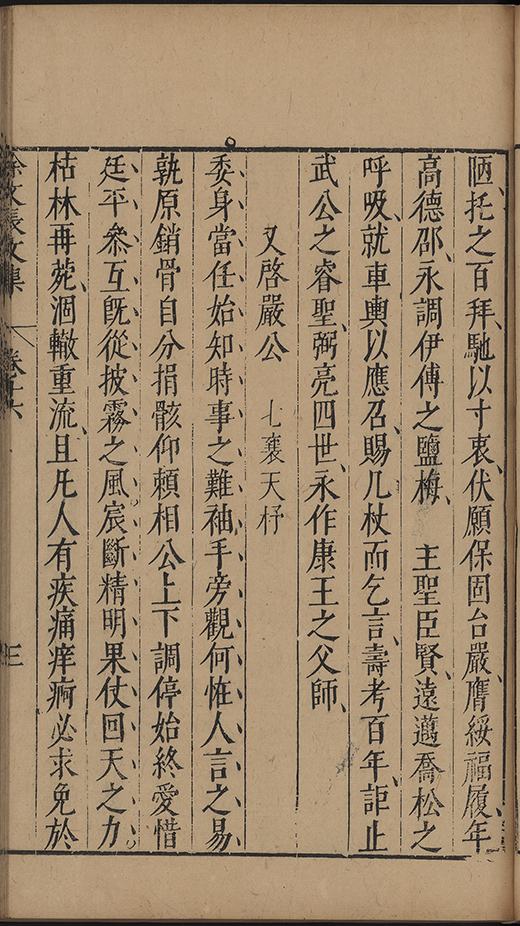 陋托之百拜馳以寸衷伏願保固台嚴膺綏福履年
高德邵永調伊傅之鹽梅　主聖臣賢遠邁喬松之
呼吸就車輿以應召賜几杖而乞言壽考百年詎止
武公之睿聖弼亮四世永作康王之父師
又啓嚴公　七襄天杼
委身當任始知時事之難袖手旁觀何恠人言之易
孰原銷骨自分捐骸仰賴相公上下調停始終愛惜
廷平叅互旣從披霧之風宸斷精明果仗回天之力
枯林再蒞涸轍重流且凡人有疾痛痒痾必求免於
徐文長文集　卷十六　三